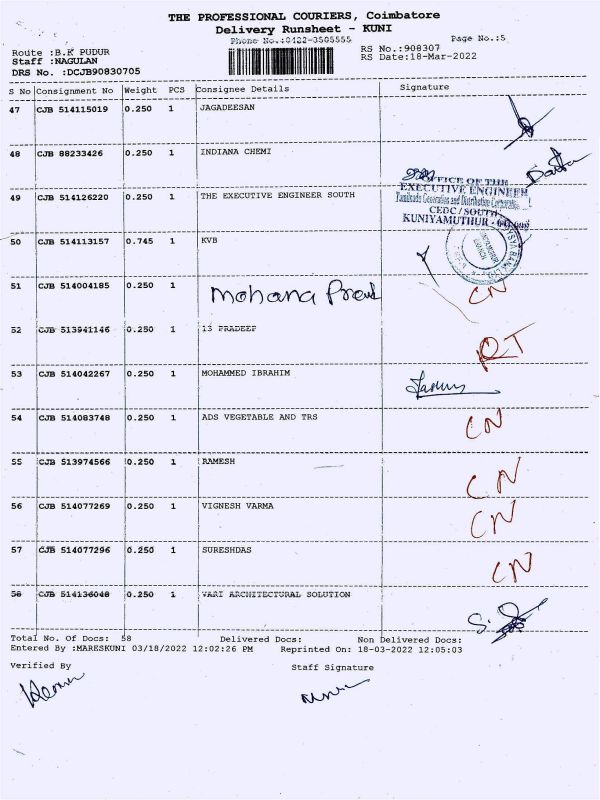 THE PROFESSIONAL COURIERS, Coimbatore
Delivery Runsheet - KUNI
Phone No.:0422-3505555
Page No.:5
Route :B.K PUDUR
RS No.:908307
Staff :NAGULAN
RS Date:18-Mar-2022
DRS No. :DCJB90830705
S No Consignment No Weight PCS Consignee Details Signature
47 CJB 514115019 0.250 1 JAGADEESAN
48 CJB 88233426 0.250 1 INDIANA CHEMI
49 CJB 514126220 0.250 1 THE EXECUTIVE ENGINEER SOUTH
OFFICE OF THE
EXECUTIVE ENGINEER
Tamilnadu Generation and Distribution Corporation
CEDC/SOUTH
KUNIYAMUTHUR
50 CJB 514113157 0.745 1 KVB
51 CJB 514004185 0.250 1 Mohana CN
52 CJB 513941146 0.250 1 13 PRADEEP
53 CJB 514042267 0.250 1 MOHAMMED IBRAHIM
54 CJB 514083748 0.250 1 ADS VEGETABLE AND TRS CN
55 CJB 513974566 0.250 1 RAMESH CN
56 CJB 514077269 0.250 1 VIGNESH VARMA CN
57 CJB 514077296 0.250 1 SURESHDAS CN
58 CJB 514136048 0.250 1 VARI ARCHITECTURAL SOLUTION
Total No. Of Docs: 58 Delivered Docs: Non Delivered Docs:
Entered By :MARESKUNI 03/18/2022 12:02:26 PM Reprinted On: 18-03-2022 12:05:03
Verified By Staff Signature